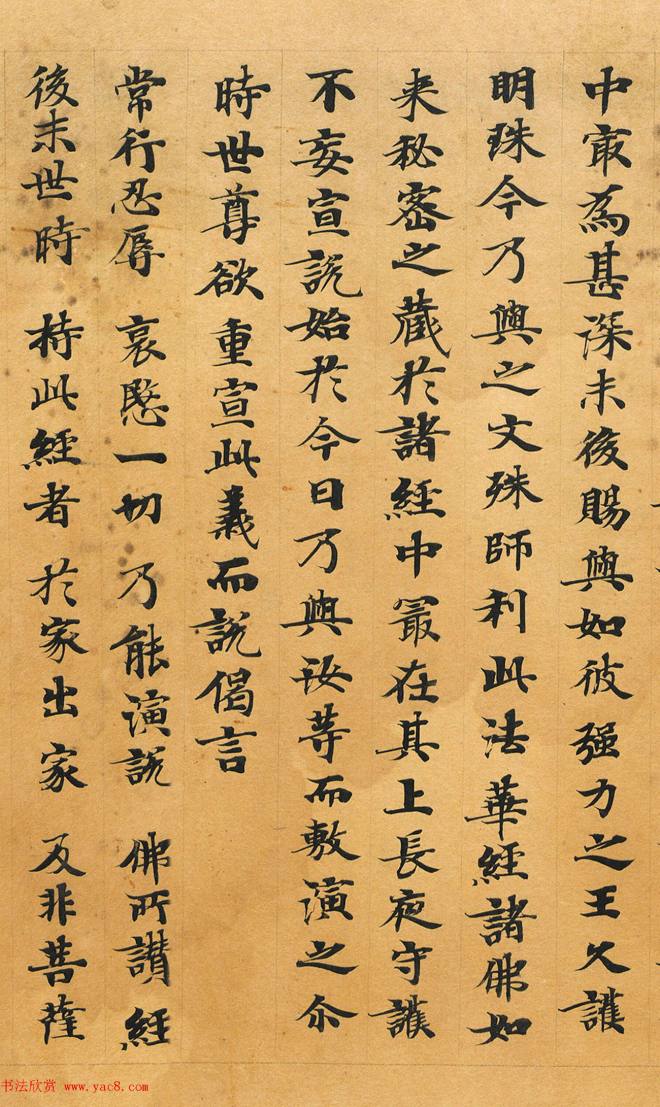 中㝡為甚深末後賜與如彼强力之王久護
明珠今乃與之文殊師利此法華經諸佛如
来秘密之蔵於諸經中㝡在其上長夜守護
不妄宣說始於今日乃與汝等而敷演之尒
時世尊欲重宣此義而說偈言
常行忍辱 哀愍一切 乃能演說 佛所讃經
後末世時 持此經者 於家出家 及非菩薩
书法欣赏 www.yac8.com